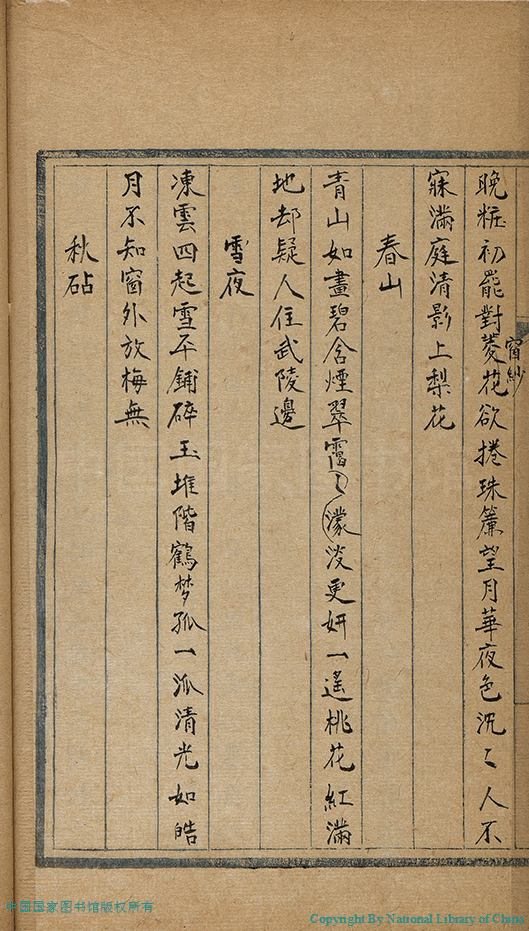 晚粧初罷對菱花欲捲珠簾望月華夜色沉〻人不
窗紗
寐滿庭清影上梨花
春山
青山如畫碧含煙翠靄〻濛淡更妍一遙桃花紅滿
地却疑人住武陵邊
雪夜
凍雲四起雪平鋪碎玉堆階鶴梦孤一派清光如皓
月不知窗外放梅無
秋砧
中国国家图书馆版权所有
Copyright By National Library of China